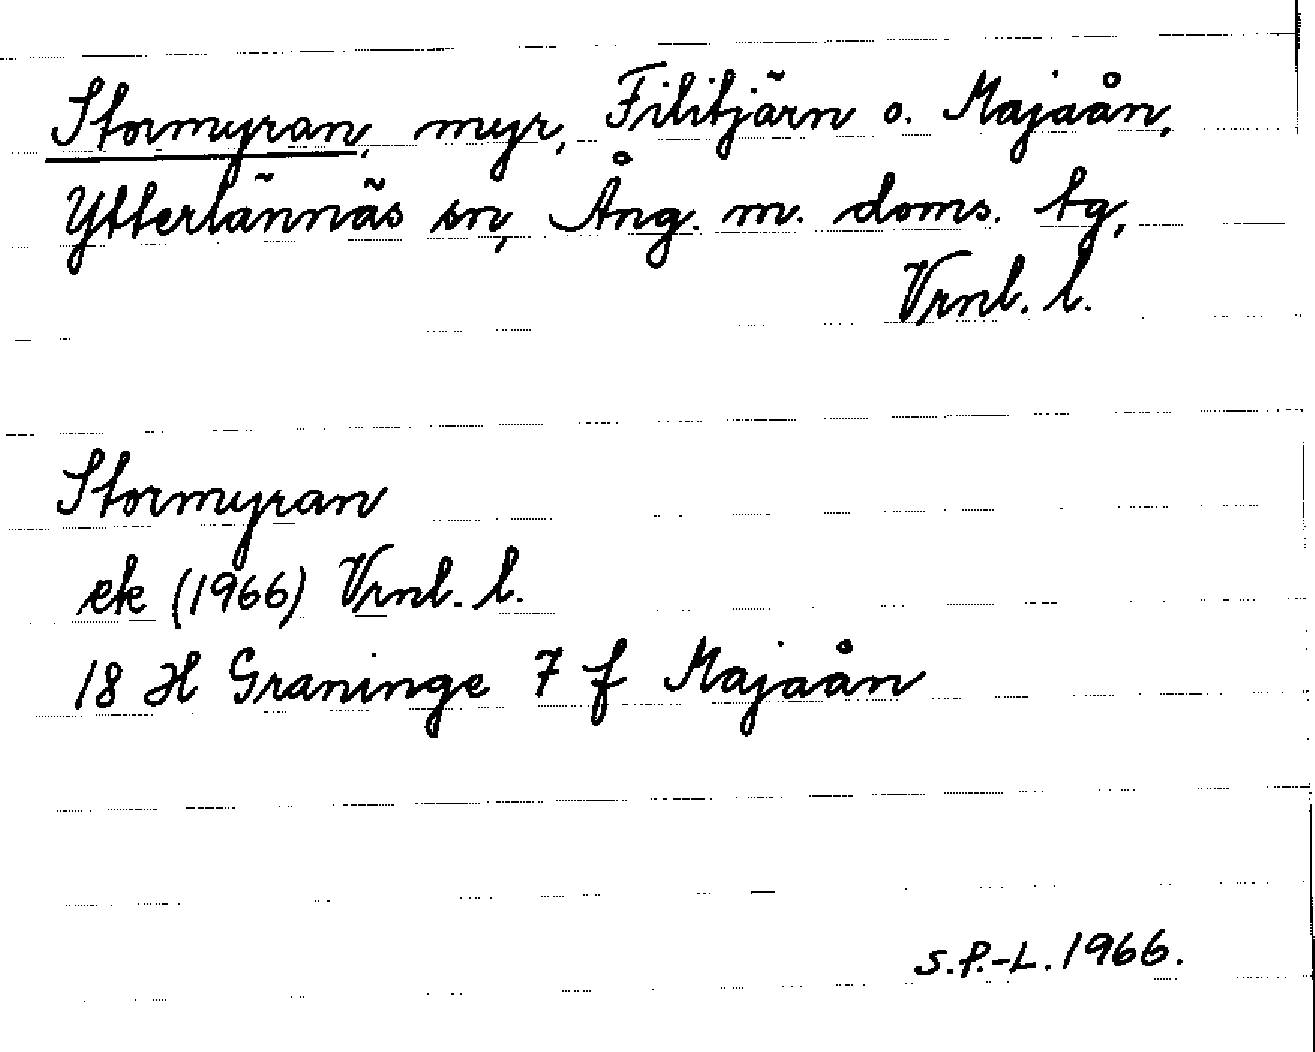 Stormyran, myr, Filitjärn o. Majaån,
Ytterlännäs sn, Ång. m. doms. tg,
Vrnl. l.
Stormyran
ek (1966) Vrnl. l.
18 H Graninge 7 f Majaån
S.P.-L. 1966.